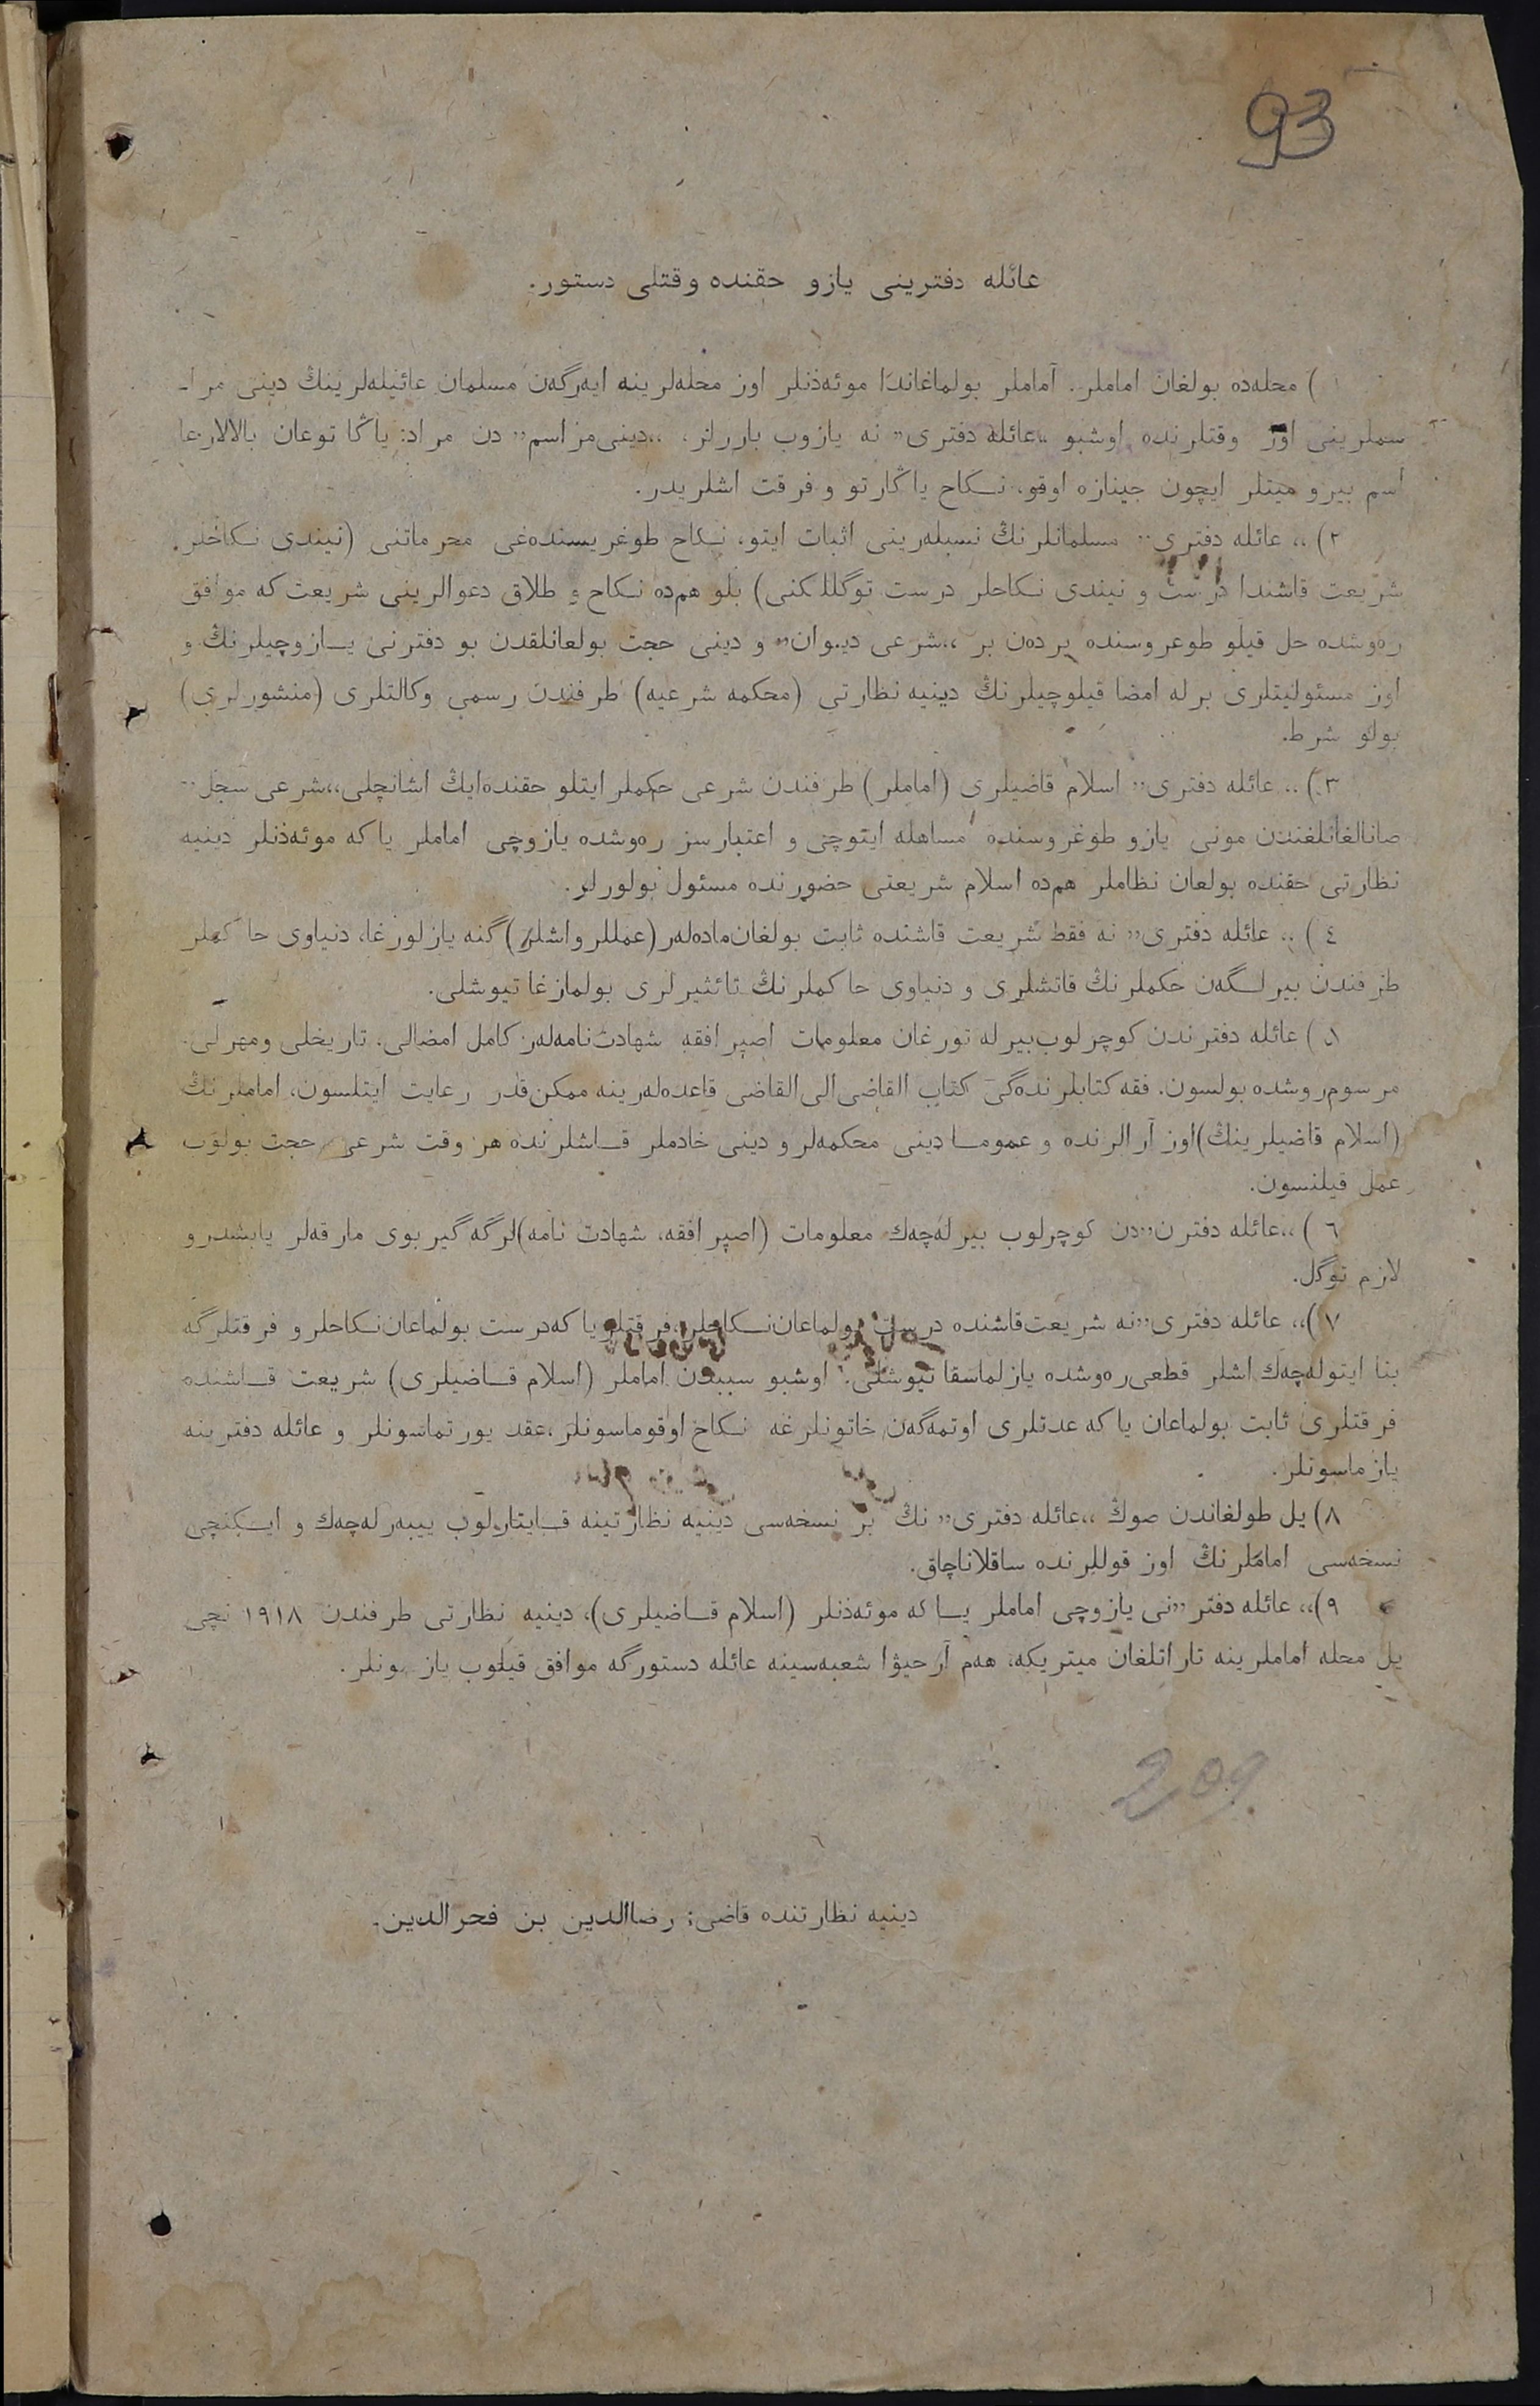 93
عائله دفترینی یازو حقنده وقتلی دستور.
١) محله‌ده بولغان اماملر. آماملر بولماغاندا موئه‌ذنلر اوز محله‌لرینه ایه‌رگه‌ن مسلمان عائیله‌لرینڭ دینی مرا-
سملرینی اوز وقتلرنده اوشبو „عائله دفتری” نه یازوب بارر‌لر، „دینی‌مراسم” دن مراد: یاڭا توعان بالالارعا
اسم بیرو میتلر ایچون جینازه اوقو، نـكاح یاڭارتو و فرقت اشلریدر.
٢) „ عائله دفتری” مسلمانلرنڭ نسبله‌رینی اثبات ایتو، نـكاح طوغریسنده‌غی محرماتنی (نیندی نـكاحلر
شریعت قاشندا درست و نیندی نـكاحلر درست توگللكنی) بلو هم‌ده نـكاح و طلاق دعوالرینی شریعت‌كه موافق
ره‌وشده حل قیلو طوعروسنده بردەن بر „شرعی دیوان” و دینی حجت بولعانلقدن بو دفترنی یـازوچیلرنڭ و
اوز مسئولیتلری برله امضا قیلوچیلرنڭ دینیه نظارتی (محكمه شرعیه) طرفندن رسمی وكالتلری (منشورلری)
بولو شرط.
٣) „ عائله دفتری” اسلام قاضیلری (اماملر) طرفندن شرعی حكملر ایتلو حقنده‌ایڭ اشانچلی„شرعی سجل”
صانالغانلغندن مونی یازو طوغروسنده مساهله ایتوچی و اعتبارسز ره‌وشده یازوچی اماملر یاكه موئه‌ذنلر دینیه
نظارتی حقنده بولعان نظاملر هم‌ده اسلام شریعتی حضورنده مسئول بولورلر.
٤) „ عائله دفتری” نه فقط شریعت قاشنده ثابت بولغان‌ماده‌لەر(عمللر واشلر)گنه یازلورغا، دنیاوی حاكملر
طرفندن بیرلـگەن حكملرنڭ قاتشلری و دنیاوی حاكملرنڭ تائثیرلری بولمازغا تیوشلی.
٥) عائله دفترندن كوچرلوب‌بیرله تورغان معلومات اصپرافقه شهادت‌نامه‌لەر كامل امضالی، تاریخلی ومهرلی.
مرسوم‌روشده بولسون. فقه كتابلرنده‌گی كتاب القاضی‌الی‌القاضی قاعده‌لەرینه ممكن‌قدر رعایت ایتلسون، اماملرنڭ
(اسلام قاضیلرینڭ)اوز آرالرنده و عموما دینی محكمه‌لر و دینی خادملر قـاشلرنده هر وقت شرعی حجت بولوب
عمل قیلنسون.
٦) „عائله دفترن”دن كوچرلوب بیرله‌چه‌ك معلومات (اصپرافقه، شهادت نامه)لرگه گیربوی مارقه‌لر یابشدرو
لازم توگل.
٧)„ عائله دفتری”نه شریعت‌قاشنده درست بولماعان‌نـكاحلر، فرقتلر یاكه‌درست بولماعان‌نـكاحلر و فرقتلرگه
بنا ایتوله‌چەك اشلر قطعی‌ره‌وشده یازلماسقا تیوشلی. اوشبو سببدن اماملر (اسلام قـاضیلری) شریعت قـاشنده
فرقتلری ثابت بولماعان یاكه عدتلری اوتمه‌گەن خاتونلرغه نـكاح اوقوماسونلر،عقد یورتماسونلر و عائله دفترینه
یازماسونلر.
٨) یل طولغاندن صوڭ „عائله دفتری” نڭ بر نسخه‌سی دینیه نظارتینه قـایتارلوب ییبه‌رله‌چەك و ایـكنچی
نسخه‌سی اماملرنڭ اوز قوللرنده ساقلاناچاق.
٩)„ عائله دفتر”نی یازوچی اماملر یـا كه موئه‌ذنلر (اسلام قـاضیلری)، دینیه نظارتی طرفندن ١٩١٨ نچی
یل محله اماملرینه تاراتلغان میتریكه، هەم آرحیۋا شعبه‌سینه عائله دستورگه موافق قیلوب یازسونلر.
209
دینیه نظارتنده قاضی: رضاالدین بن فخرالدین.